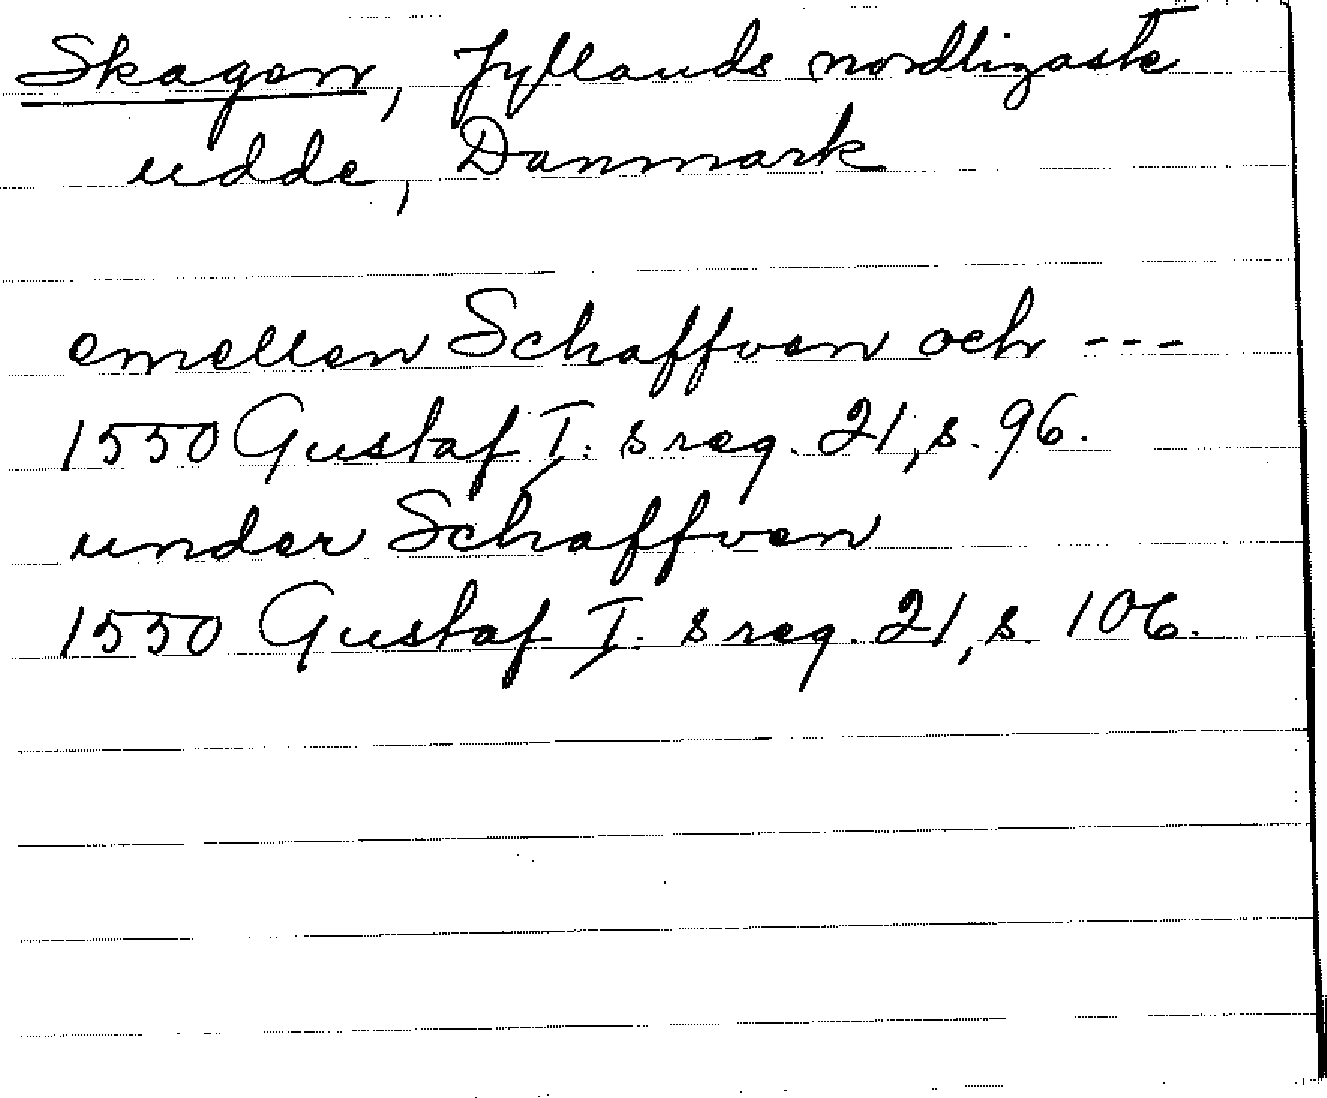 Skagen, Jyllands nordligaste
udde, Danmark
emellen Schaffven och ---
1550 Gustaf I:s reg. 21, s. 96.
under Schaffven
1550 Gustaf I:s reg. 21, s. 106.